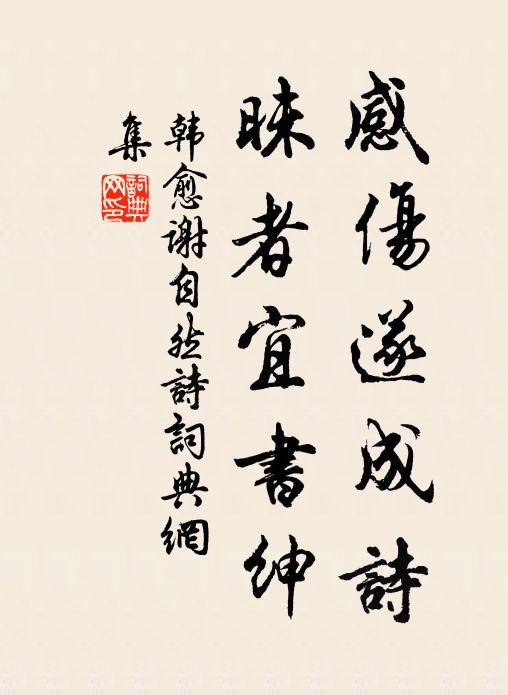 感傷遂成詩
昧者宜書紳
韩愈谢自然詩詞典網
集
詞典网印